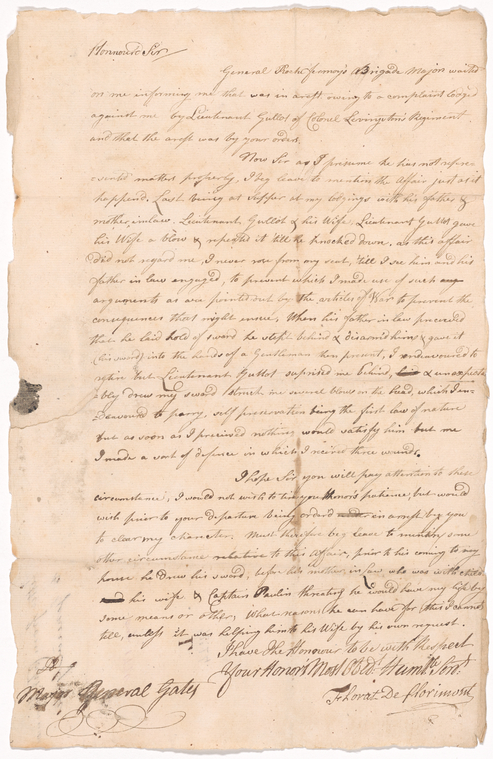 Honnour'd Sir
General Rochefermoy's Brigade Major waited
on me informing me that was in arest owing to a complaint Lodg'd
against me by Lieutenant Gullot of Colonel Levingston's Regiment
and that the arest was by your order.
Now Sir as I presume he has not repre-
sented matters properly, I beg leave to mention the Affair just as it
happend. Last being at supper at my lodgings with his father &
mother inlaw. Lieutenant Gullot & his Wife, Lieutenant Gullot gave
his Wife a blow & repeated it till he knocked down. as this affair
did not regard me, I never rose from my seat, till I see him and his
father in law engaged, to prevent which I made use of such
arguments as are pointed out by the articles of War to prevent the
consequences that might ensue, When his father in law preceeded
that he laid hold of sword he stept behind & disarmd him & gave it
(his sword) into the hands of a Gentleman then present, I endeavoured to
retire but Lieutenant Gullot suprised me behind, & unexpect-
ably drew my sword & struck me several blows on the head, which I en-
Deavourd to parry. self preservation being the first law of nature
but as soon as I perceived nothing would satisfy him but me
I made a sort of defence in which I receiv'd those wounds.
I hope Sir you will pay attention to these
circumstance, I would not wish to tire you Honor's patience, but would
wish prior to your departure being orderd in arrest by you
to clear my character. Must therefore beg leave to mention some
other circumstance relative to this Affair, prior to his coming to my
house he drew his sword, before his mother in law who was with
his wife & Captain Pavlin threating he would have my life by
some means or other, What reasons he can have for this I cannot
tell, unless it was helping him to his Wife by his own request.
I have the Honnour to be with Respect
Your Honors Most Obed. Humble Servt
Florat De florimont
Major General Gates